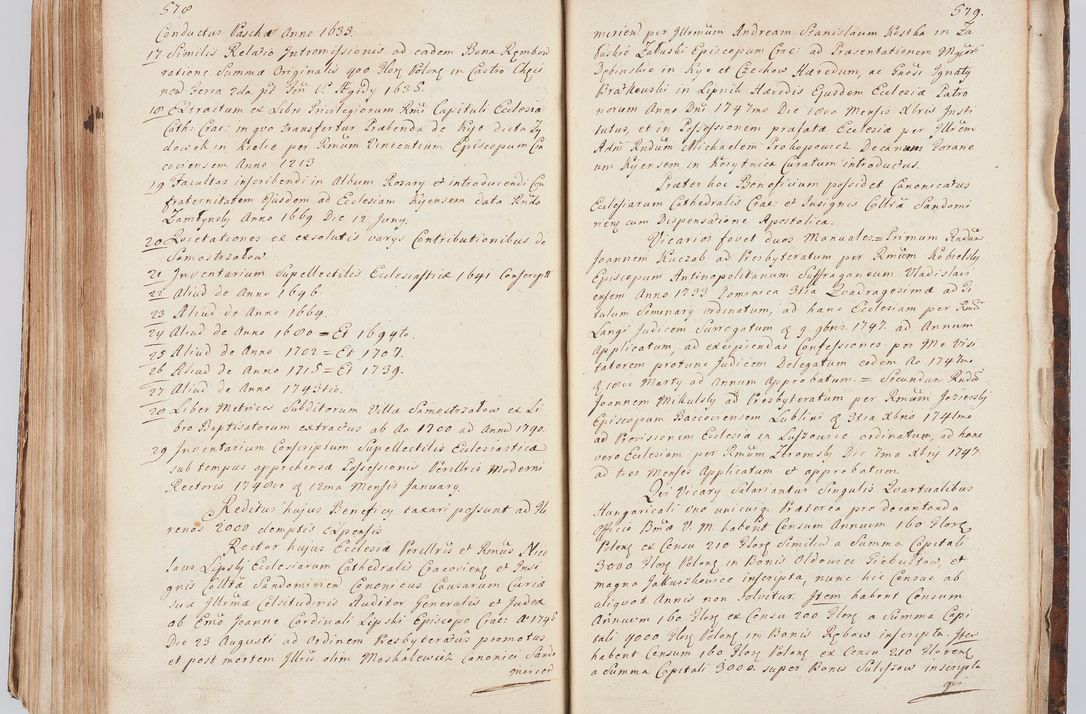 578
Conductus Pascha Anno 1633.
17 Similis Relatio Intromissionis ad eadem Bona Rembow
ratione Summæ Originalis 400 Floren Polon in Castro Chęci
nen Feria 2da pt Fm S. Ægidy 1635.
18 Extractum ex Libro Privilegiorum Rmi Capituli Ecclesiæ
Cath: Crac: in quo transfertur Præbenda de Kije dicta Zy
dowek in Kielce per Rmum Vincentium Episcopum Cra
coviensem Anno 1213
19 Facultas inscribendi in Album Rosary et introducendi Con
fraternitatem Ejusdem ad Ecclesiam Kijensem data Rndo
Zambynsky Anno 1669 Die 12 Juny.
20 Quietationes ex exsolutis varys Contributionibus de
Samostrzałow.
21 Inventarium Supellectilis Ecclesiasticæ 1641 Conscript
22 Aliud de Anno 1646
23 Aliud de Anno 1664.
24 Aliud de Anno 1680 = Et 1694to.
25 Aliud de Anno 1702 = Et 1707.
26 Aliud de Anno 1715 = Et 1739.
27 Aliud de Anno 1743tio.
28 Liber Metrices Subditorum Villæ Samostrzałow ex Li
bro Baptisatorum extractus ab Ao 1700 ad Annū 1740.
29 Inventarium Conscriptum Supellectilis Ecclesiasticæ
sub tempus apprehensæ Possessionis Perillris Moderni
Rectoris 1748vo 12ma Mensis January.
Reditus hujus Beneficy taxari possunt ad Flo
renos 2000 demptis expensis.
Rector hujus Ecclesiæ Perillris et Rmus Nico
laus Lipsky Ecclesiarum Cathedralis Cracovien et Insi
gnis Collta Sandomirien Canonicus Causarum Curiæ
suæ Illrmæ Celsitudinis Auditor Generalis et Judex
ab Emo Joanne Cardinali Lipski Episcopo Crac: Ao 1745
Die 23 Augusti ad Ordinem Presbyteratus promotus
et post mortem Illris olim Moskalewicz Canonici Sando
mirien
579.
mirien per Illrmum Andream Stanislaum Kostka in Za
łuskie Załuski Episcopum Crac: ad Præsentationem Mgcor
Dębinskie in Kije et Czechow Hæredum, ac Gnosi Ignaty
Bratkowski in Lipnik Hæredis Ejusdem Ecclesiæ Patro
norum Anno Dni 1747mo Die 10mo Mensis Xbris Insti
tutus, et in Possessionem præfatæ Ecclesiæ per Illrem
Adm Rndum Michaelem Prokopowicz Decanum Forane
um Kijensem in Korytnica Curatum introductus.
Præter hoc Beneficium possidet Canonicatus
Ecclesiarum Cathedralis Crac: et Insignis Colltæ Sandomi
rien cum Dispensatione Apostolica.
Vicarios fovet duos Manuales = Primum Rndum
Joannem Kuczab ad Presbyteratum per Rmum Kobielsky
Episcopum Antinopolitanum Suffraganeum Vladislavi
ensem Anno 1733 Dominica 3tia Quadragesimæ ad Ti
tulum Seminary ordinatum, ad hanc Ecclesiam per Rmū
Langi Judicem Surrogatum 9 9bris 1747 ad Annum
Applicatum, ad excipiendas Confessiones per Me Visi
tatorem protunc Judicem Delegatum eodem Ao 1747mo
10ma Marty ad Annum Approbatum. = Secundum Rndū
Joannem Mikulsky ad Presbyteratum per Rmum Jeziersky
Episcopum Baccoviensem Lublini 3tia Xbris 1741mo
ad Provisionem Ecclesiæ in Luszowice ordinatum, ad hanc
vero Ecclesiam per Rmum Zeromsky Die 7ma Xbris 1747
ad tres Menses Applicatum et approbatum.
Qui Vicary Salariantur Singulis Quartualibus
Hungaricali uno unicuiq. Præterea pro decantando
Officio Bmæ V. M. habent Censum Annuum 160 Floren
Polon ex Censu 210 Floren Similiū a Summa Capitali
3000 Floren Polon in Bonis Oldowice Giebułtow, et
magna Jakuszewice inscripta, nunc hic Census ab
aliquot Annis non Solvitur. Item habent Censum
Annuum 160 Floren ex Censu 200 Floren a Summa Capi
tali 4000 Floren Polon in Bonis Rębow inscripta. Item
habent Censum 160 Floren Polon ex Censu 210 Floren
a Summa Capitali 3000. super Bonis Suliszow inscripta
qui